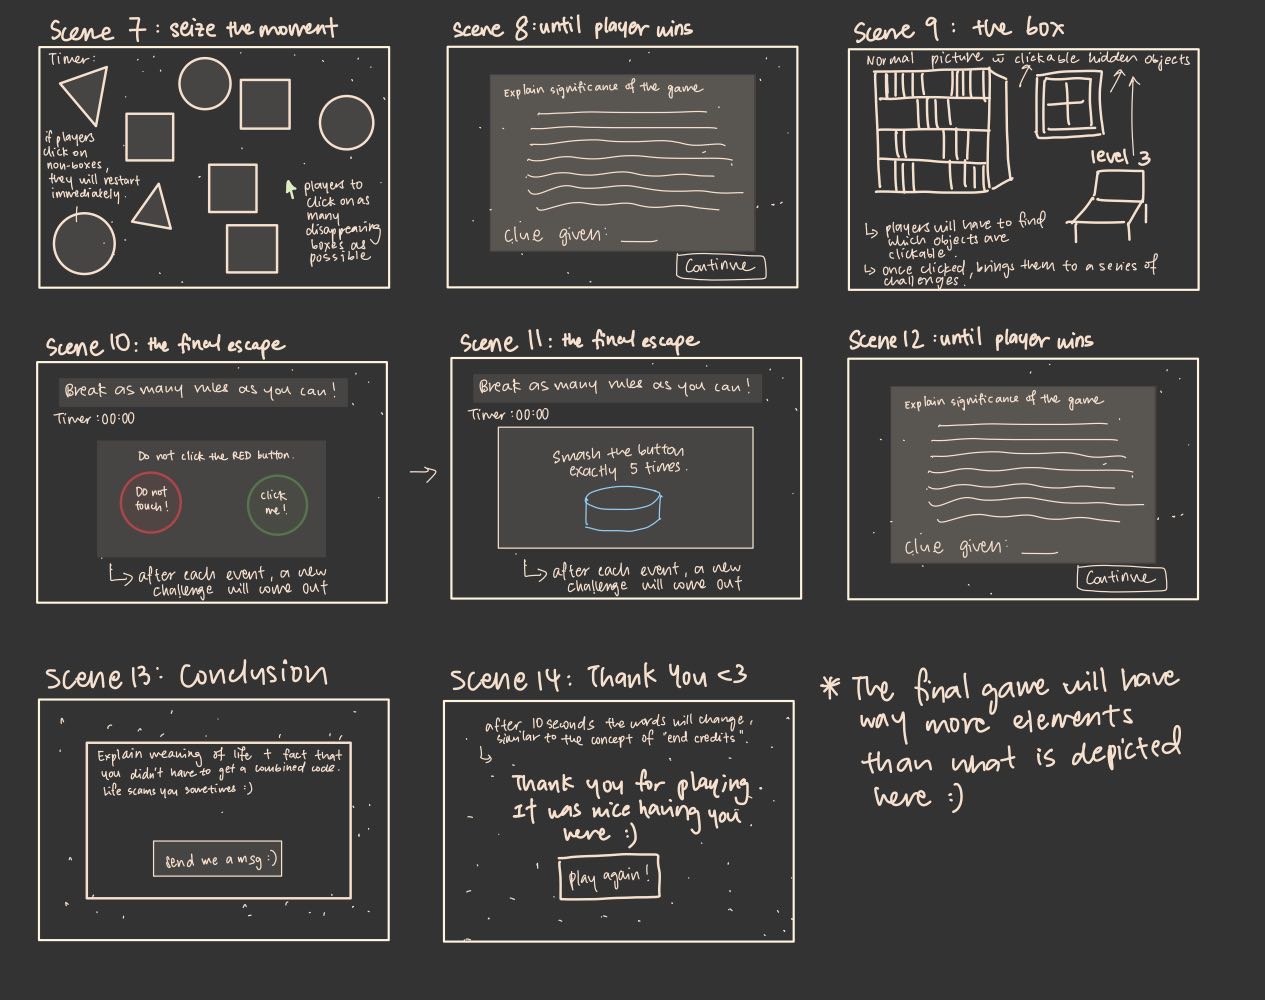 Scene 7: seize the moment
Timer:
if players
click on
non-boxes,
they will restart
immediately.
players to
click on as
many
disappearing
boxes as
possible
Scene 8: until player wins
Explain significance of the game
Clue given: ___
Continue
Scene 9: the box
Normal picture w clickable hidden objects
level 3
↳ players will have to find
which objects are
clickable.
↳ once clicked, brings them to a series of
challenges.
Scene 10: the final escape
Break as many rules as you can!
Timer: 00:00
Do not click the RED button.
Do not
touch!
click
me!
↳ after each event, a new
challenge will come out
Scene 11: the final escape
Break as many rules as you can!
Timer: 00:00
Smash the button
exactly 5 times.
↳ after each event, a new
challenge will come out
Scene 12: until player wins
Explain significance of the game
Clue given: ___
Continue
Scene 13: Conclusion
Explain meaning of life + fact that
you didn't have to get a combined code.
Life scams you sometimes :)
Send me a msg :)
Scene 14: Thank You <3
after 10 seconds the words will change,
similar to the concept of "end credits".
Thank you for playing.
It was nice having you
here :)
Play again!
* The final game will have
way more elements
than what is depicted
here :)